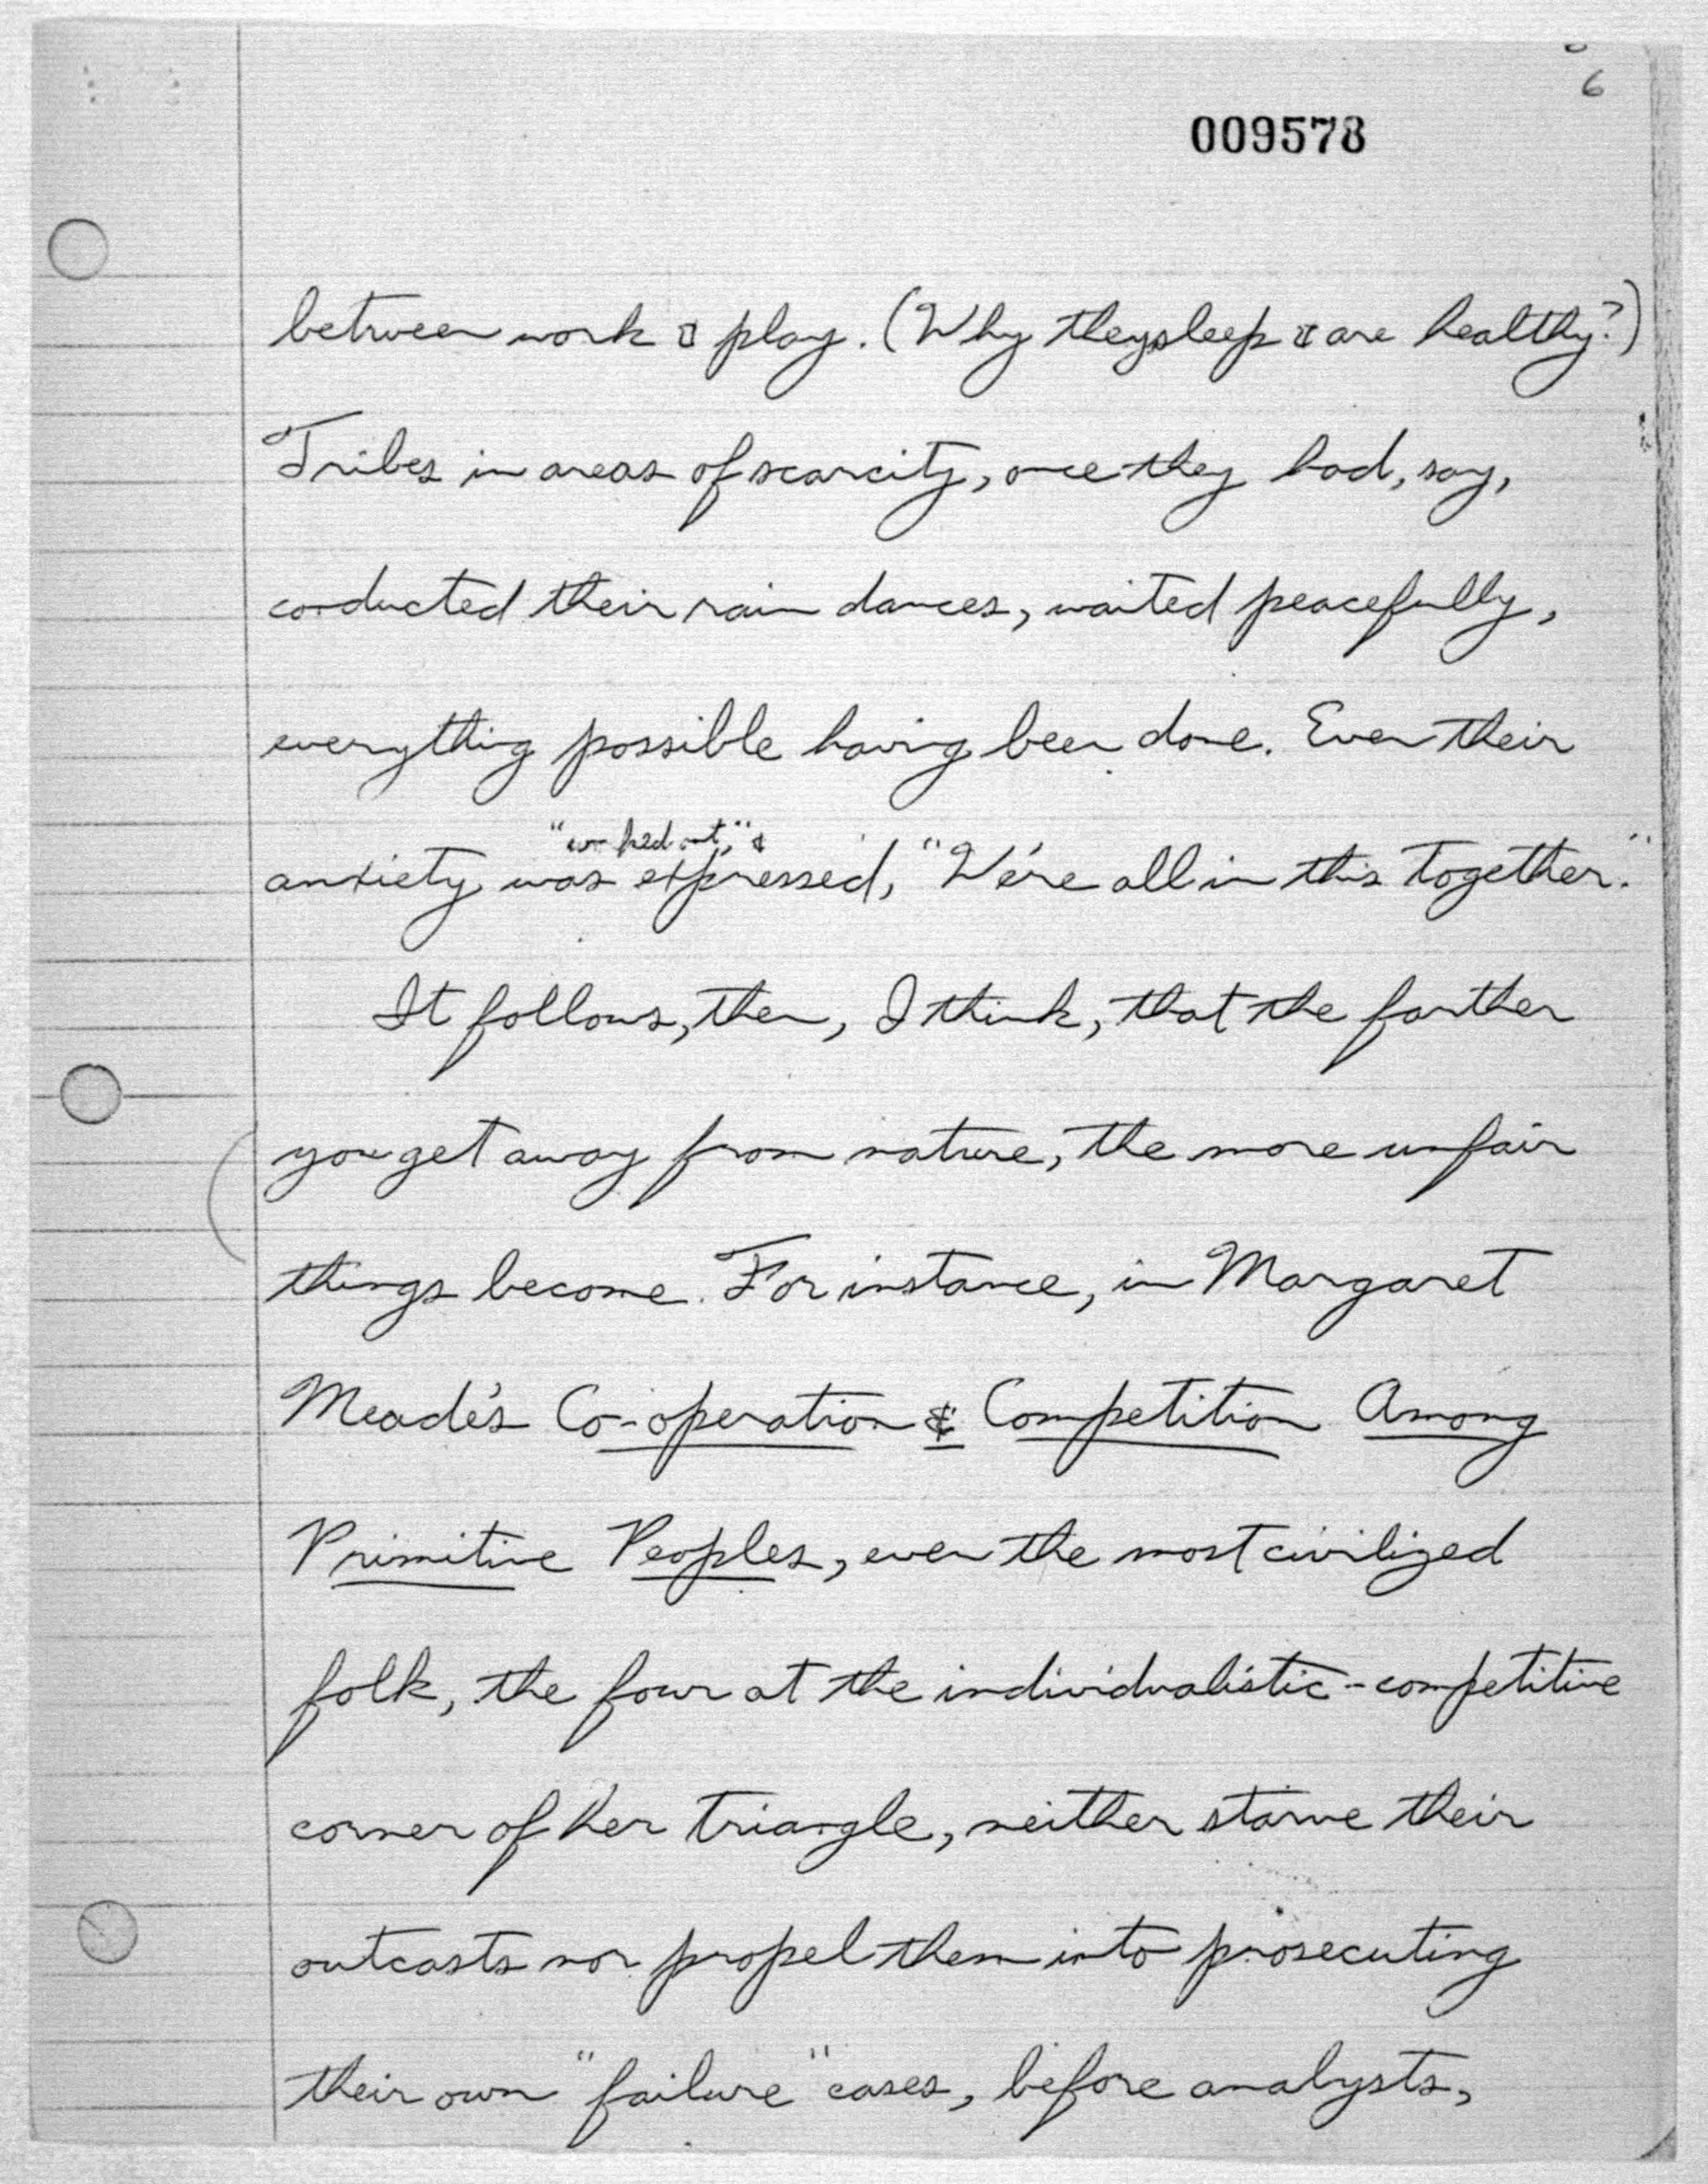 6
009578
between work & play. (Why they sleep & are healthy?)
Tribes in areas of scarcity, once they had, say,
conducted their rain dances, waited peacefully,
everything possible having been done. Even their
"worked out," &
anxiety was expressed, "We're all in this together."
It follows, then, I think, that the farther
you get away from nature, the more unfair
things become. For instance, in Margaret
Meade's Co-operation & Competition Among
Primitive Peoples, even the most civilized
folk, the four at the individualistic-competitive
corner of her triangle, neither starve their
outcasts nor propel them into prosecuting
their own "failure" cases, before analysts,